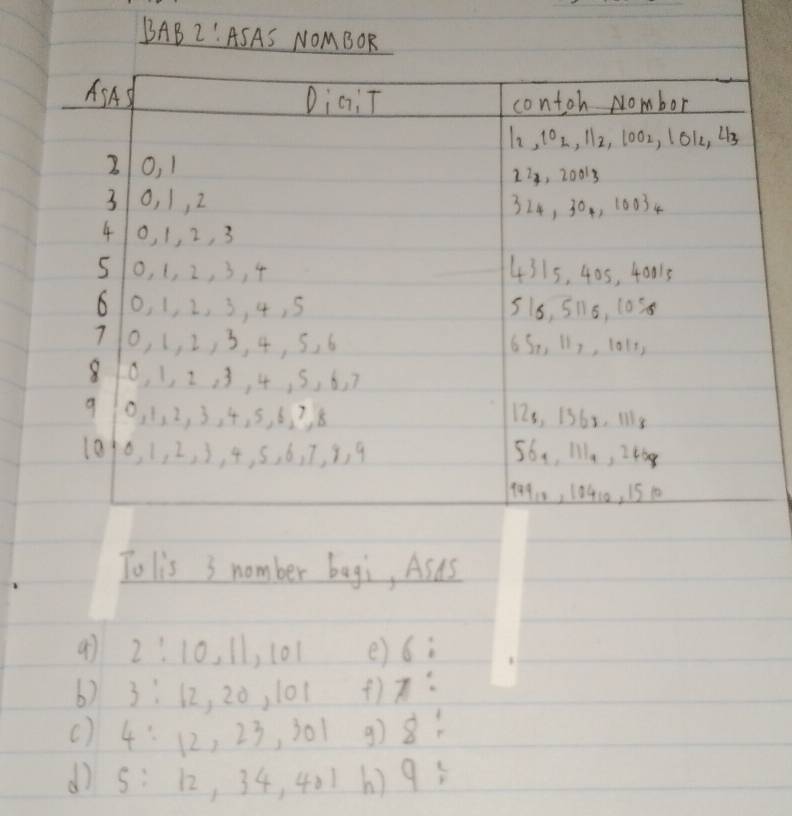 BAB 2: ASAS NOMBOR
ASAS DiGiT contoh Nombor
1₂, 10₂, 11₂, 100₂, 101₂, 4₃
2 0, 1 22₃, 2001₃
3 0, 1, 2 32₄, 30₄, 1003₄
4 0, 1, 2, 3
5 0, 1, 2, 3, 4 431₅, 40₅, 4001₅
6 0, 1, 2, 3, 4, 5 51₆, 511₆, 105₆
7 0, 1, 2, 3, 4, 5, 6 65₇, 11₇, 101₇,
8 0, 1, 2, 3, 4, 5, 6, 7
9 0, 1, 2, 3, 4, 5, 6, 7, 8 12₈, 136₈, 111₈
10 0, 1, 2, 3, 4, 5, 6, 7, 8, 9 56₉, 111₉,
999₁₀, 104₁₀, 15₁₀
Tulis 3 nomber bagi, ASAS
a) 2: 10, 11, 101 e) 6:
b) 3: 12, 20, 101 f) 7:
c) 4: 12, 23, 301 g) 8:
d) 5: 12, 34, 401 h) 9: